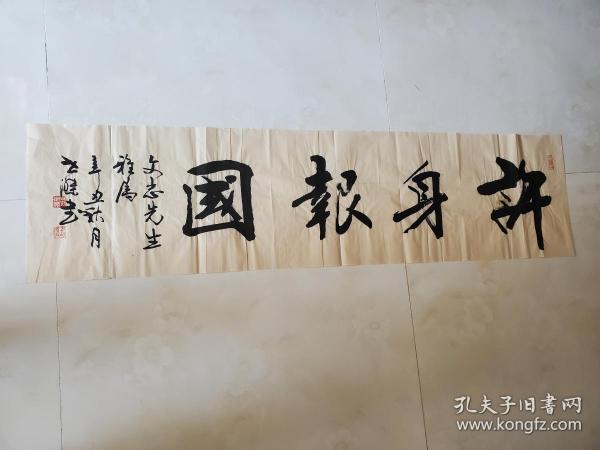 許身報國
文志先生
雅屬
辛丑秋月
孔夫子旧书网
www.kongfz.com